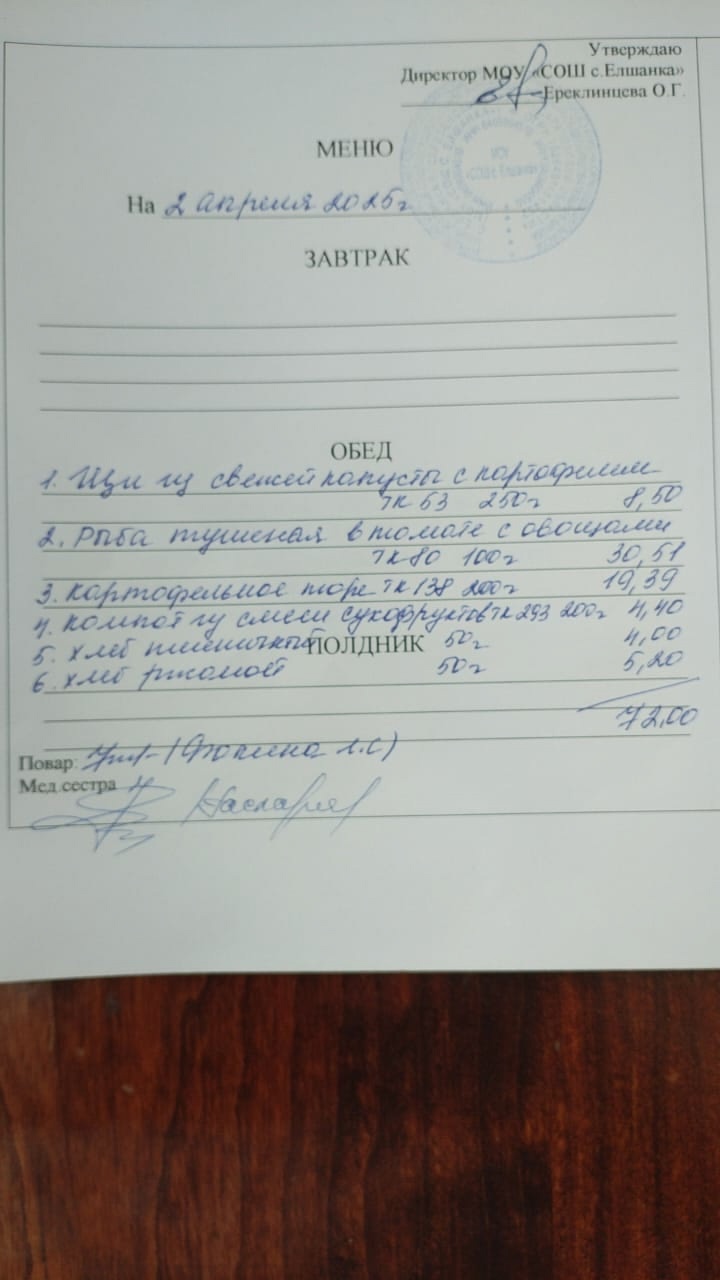 Утверждаю
Директор МОУ «СОШ с.Елшанка»
Ереклинцева О.Г.
МЕНЮ
На 2 апреля 2025г
ЗАВТРАК
ОБЕД
1. Щи из свежей капусты с картофелем
ТК 63 250г 8,50
2. Рыба тушеная в томате с овощами
ТК 80 100г 30,51
3. Картофельное пюре ТК 138 200г 19,39
4. Компот из смеси сухофруктов ТК 293 200г 4,40
5. Хлеб пшеничный 50г 4,00
ПОЛДНИК
6. Хлеб ржаной 50г 5,20
72,00
Повар:
Мед.сестра